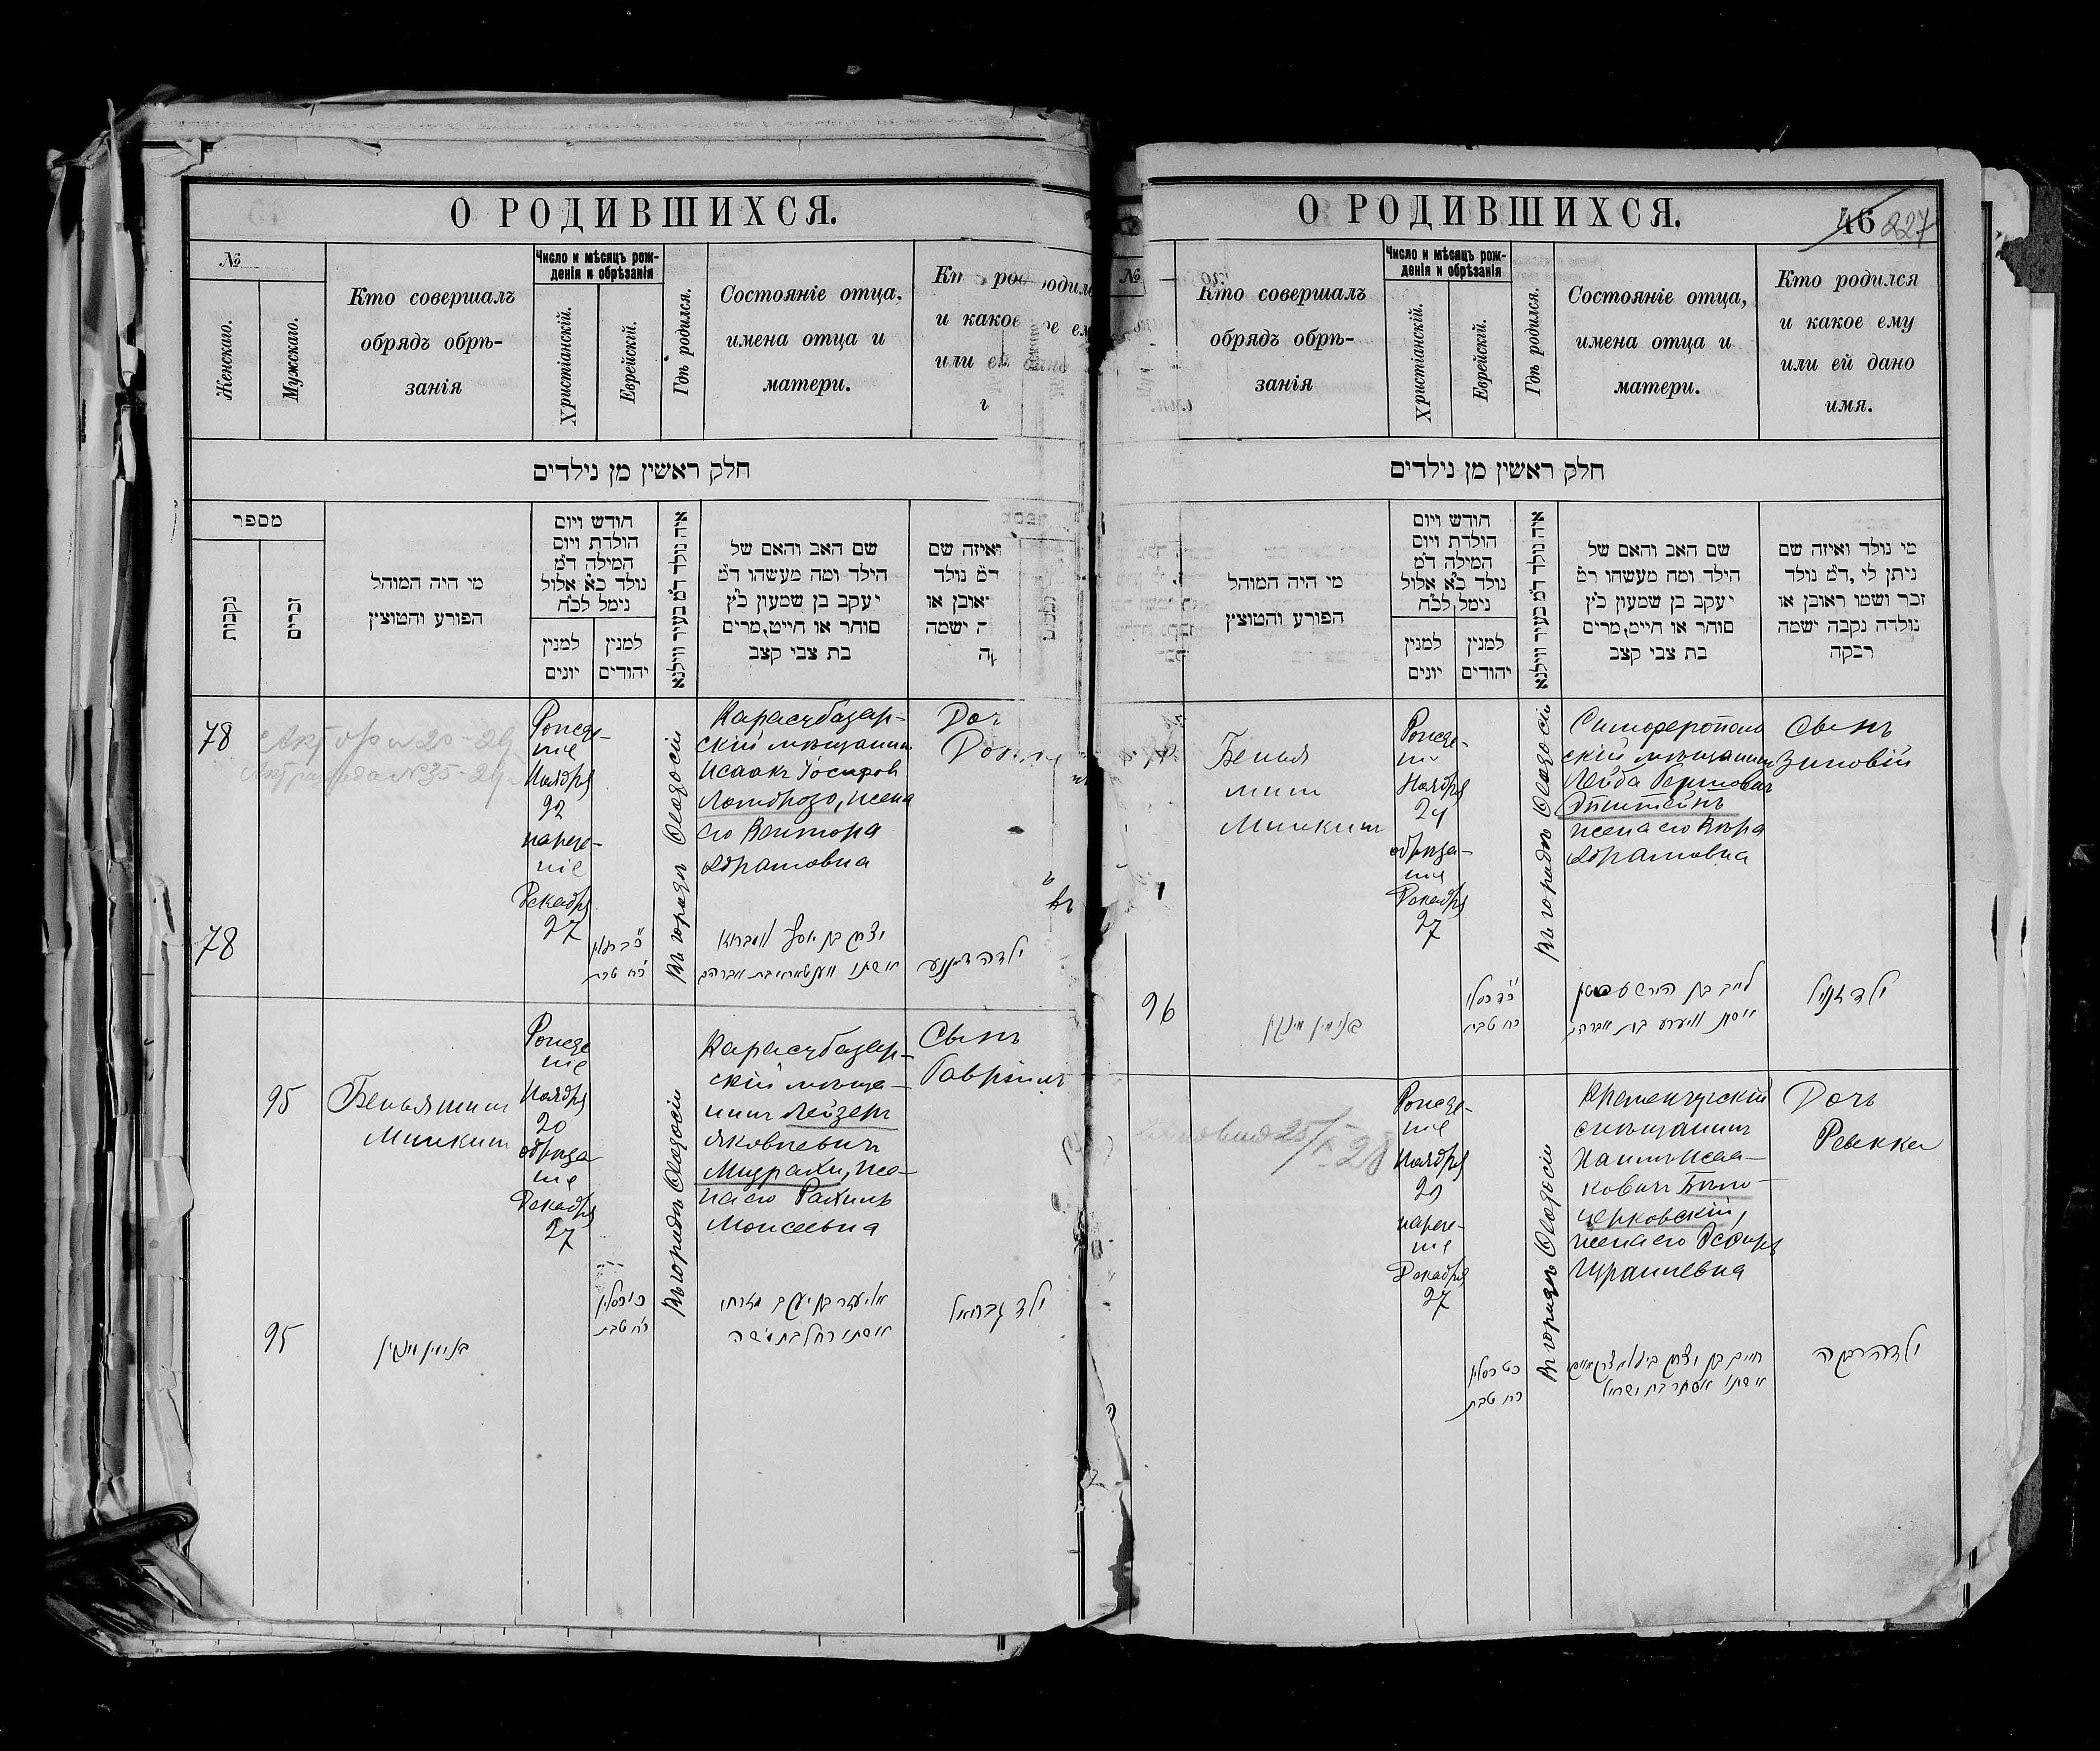 О РОДИВШИХСЯ.
№
Женскаго.
Мужскаго.
Кто совершалъ
обрядъ обрѣ-
занія
Число и мѣсяцъ рож-
денія и обрѣзанія
Христіанскій.
Еврейскій.
Гдѣ родился.
Состояніе отца,
имена отца и
матери.
и какое
или ей
חלק ראשין מן נילדים
מספר
נקבות
זכרים
מי היה המוהל
הפורע והמוצץ
חודש ויום
הולדת ויום
המילה ד״מ
נולד כ״א אלול
נימל לכ״ח
למנין
יונים
למנין
יהודים
איה נולד ד״מ בעיר ווילנא
שם האב והאם של
הילד ומה מעשהו ד״מ
יעקב בן שמעון כ״ץ
סוחר או חייט, מרים
בת צבי קצב
ואיזה שם
ד״מ נולד
ראובן או
ה ישמה
78
Рожде-
ніе
Ноября
22
нарече-
ніе
Декабря
27
Въ городѣ Ѳеодосіи
Карасубазар-
скій мѣщанинъ
Исаакъ Іосифов
Ломброзо, жена
его Виктора
Абрамовна
Доч
78
כ״ח טבת
יצחק בן יוסף לאמברוזא
אשתו וויקטאריא בת אברהם
ילדה
95
Беньяминъ
Минкинъ
Рожде
ніе
Ноября
20
обрѣза
ніе
Декабря
27
Въ городѣ Ѳеодосіи
Карасубазар-
скій мѣща-
нинъ Лейзеръ
Яковлевичъ
Мизрахи, же-
на его Рахиль
Моисеевна
Сынъ
Гавріилъ
95
בנימין מינקין
כ״ח טבת
אליעזר בן יעקב מזרחי
אשתו רחל בת משה
ילד גבריאל
О РОДИВШИХСЯ.
46 227
№
Кто совершалъ
обрядъ обрѣ-
занія
Число и мѣсяцъ рож-
денія и обрѣзанія
Христіанскій.
Еврейскій.
Гдѣ родился.
Состояніе отца,
имена отца и
матери.
Кто родился
и какое ему
или ей дано
имя.
חלק ראשין מן נילדים
מי היה המוהל
הפורע והמוצץ
חודש ויום
הולדת ויום
המילה ד״מ
נולד כ״א אלול
נימל לכ״ח
למנין
יונים
למנין
יהודים
איה נולד ד״מ בעיר ווילנא
שם האב והאם של
הילד ומה מעשהו ד״מ
יעקב בן שמעון כ״ץ
סוחר או חייט, מרים
בת צבי קצב
מי נולד ואיזה שם
ניתן לי, ד״מ נולד
זכר ושמו ראובן או
נולדה נקבה ישמה
רבקה
Беньямин
Минкинъ
Рожде-
ніе
Ноября
24
обрѣза-
ніе
Декабря
27
Въ городѣ Ѳеодосіи
Симферополь
скій мѣщанинъ
Лейба Гершовичъ
Эпштейнъ
жена его Вѣра
Абрамовна
Сынъ
Зиновій
96
בנימין מינקין
כ״ד כסלו
כ״ח טבת
לייב בן הירש
אשתו ווערע בת אברהם
ילד
Рожде-
ніе
Ноября
29
нарече-
ніе
Декабря
27
Въ городѣ Ѳеодосіи
Кременчугскій
мѣщанинъ
Хаимъ Исаа-
ковичъ Бѣло-
церковскій,
жена его Эсфирь
Израилевна
Дочь
Ревекка
כט כסלו
כ״ח טבת
חיים בן יצחק
אשתו אסתר בת ישראל
ילדה רבקה